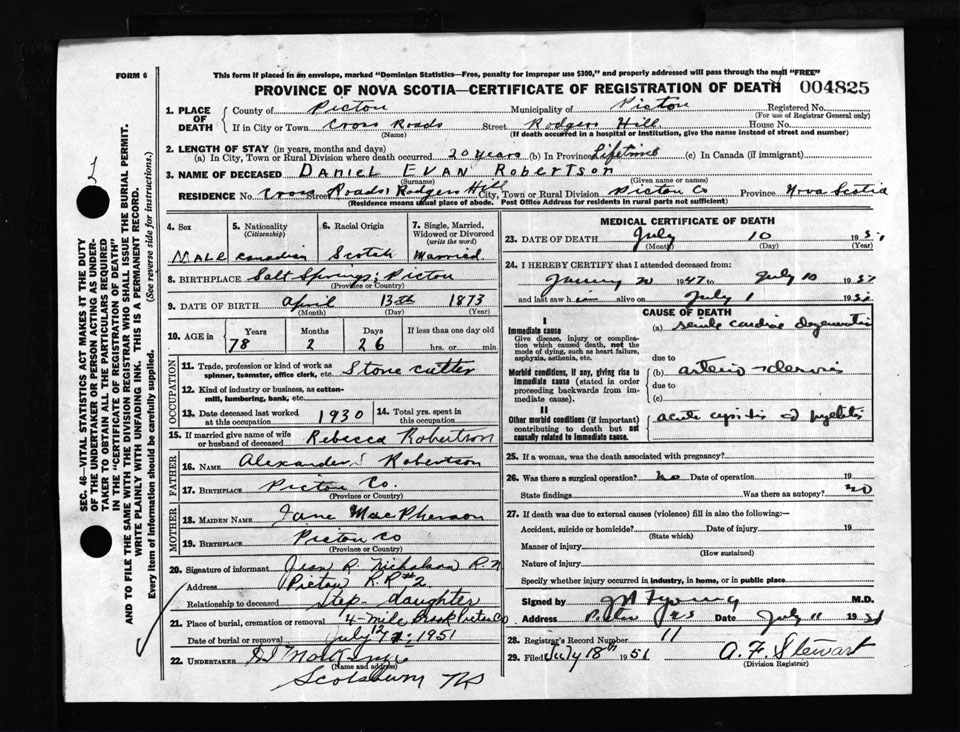 FORM 6
This form if placed in an envelope, marked "Dominion Statistics—Free, penalty for improper use $300," and properly addressed will pass through the mail "FREE"
PROVINCE OF NOVA SCOTIA—CERTIFICATE OF REGISTRATION OF DEATH 004825
SEC. 46—VITAL STATISTICS ACT MAKES IT THE DUTY
OF THE UNDERTAKER OR PERSON ACTING AS UNDER-
TAKER TO OBTAIN ALL THE PARTICULARS REQUIRED
IN THE "CERTIFICATE OF REGISTRATION OF DEATH"
AND TO FILE THE SAME WITH THE DIVISION REGISTRAR WHO SHALL ISSUE THE BURIAL PERMIT.
WRITE PLAINLY WITH UNFADING INK. THIS IS A PERMANENT RECORD.
Every item of information should be carefully supplied. (See reverse side for instructions.)
1. PLACE OF DEATH County of Pictou Municipality of Pictou Registered No.
(For use of Registrar General only)
If in City or Town Cross Roads Street Rodgers Hill House No.
(Name) (If death occurred in a hospital or institution, give the name instead of street and number)
2. LENGTH OF STAY (in years, months and days)
(a) In City, Town or Rural Division where death occurred 20 years (b) In Province Lifetime (c) In Canada (if immigrant)
3. NAME OF DECEASED DANIEL EVAN Robertson
(Surname) (Given name or names)
RESIDENCE No. Cross Street Roads Rodgers Hill City, Town or Rural Division Pictou Co Province Nova Scotia
(Residence means usual place of abode. Post Office Address for residents in rural parts not sufficient)
4. Sex 5. Nationality (Citizenship) 6. Racial Origin 7. Single, Married, Widowed or Divorced (write the word)
MALE Canadian Scotch Married
8. BIRTHPLACE Salt Springs; Pictou
(Province or Country)
9. DATE OF BIRTH April 13th 1873
(Month) (Day) (Year)
10. AGE in Years Months Days If less than one day old
78 2 26 hrs. or min.
OCCUPATION
11. Trade, profession or kind of work as spinner, teamster, office clerk, etc. Stone cutter
12. Kind of industry or business, as cotton-mill, lumbering, bank, etc.
13. Date deceased last worked at this occupation 1930 14. Total yrs. spent in this occupation
15. If married give name of wife or husband of deceased Rebecca Robertson
FATHER
16. NAME Alexander Robertson
17. BIRTHPLACE Pictou Co.
(Province or Country)
MOTHER
18. MAIDEN NAME Jane MacPherson
19. BIRTHPLACE Pictou Co
(Province or Country)
20. Signature of informant Jean R. Nicholson R.N
Address Pictou R.R #2.
Relationship to deceased Step-daughter
21. Place of burial, cremation or removal 4-Mile Brook Pictou Co
Date of burial or removal July 12, 1951
22. UNDERTAKER
(Name and address)
Scotsburn NS
MEDICAL CERTIFICATE OF DEATH
23. DATE OF DEATH July 10 1951
(Month) (Day) (Year)
24. I HEREBY CERTIFY that I attended deceased from:
1947 to July 10 1951
and last saw him alive on July 1 1951
CAUSE OF DEATH
I
Immediate cause
Give disease, injury or complication which caused death, not the mode of dying, such as heart failure, asphyxia, asthenia, etc.
(a) senile cardiac degeneration
due to
Morbid conditions, if any, giving rise to immediate cause (stated in order proceeding backwards from immediate cause).
(b) arterio sclerosis
due to
(c)
II
Other morbid conditions (if important) contributing to death but not causally related to immediate cause.
acute cystitis & pyelitis
25. If a woman, was the death associated with pregnancy?
26. Was there a surgical operation? no Date of operation 19
State findings Was there an autopsy? no
27. If death was due to external causes (violence) fill in also the following:—
Accident, suicide or homicide? Date of injury 19
(State which)
Manner of injury
(How sustained)
Nature of injury
Specify whether injury occurred in industry, in home, or in public place
Signed by M.D.
Address Pictou NS Date July 11 1951
28. Registrar's Record Number 11
29. Filed July 18th 1951 A. F. Stewart
(Division Registrar)